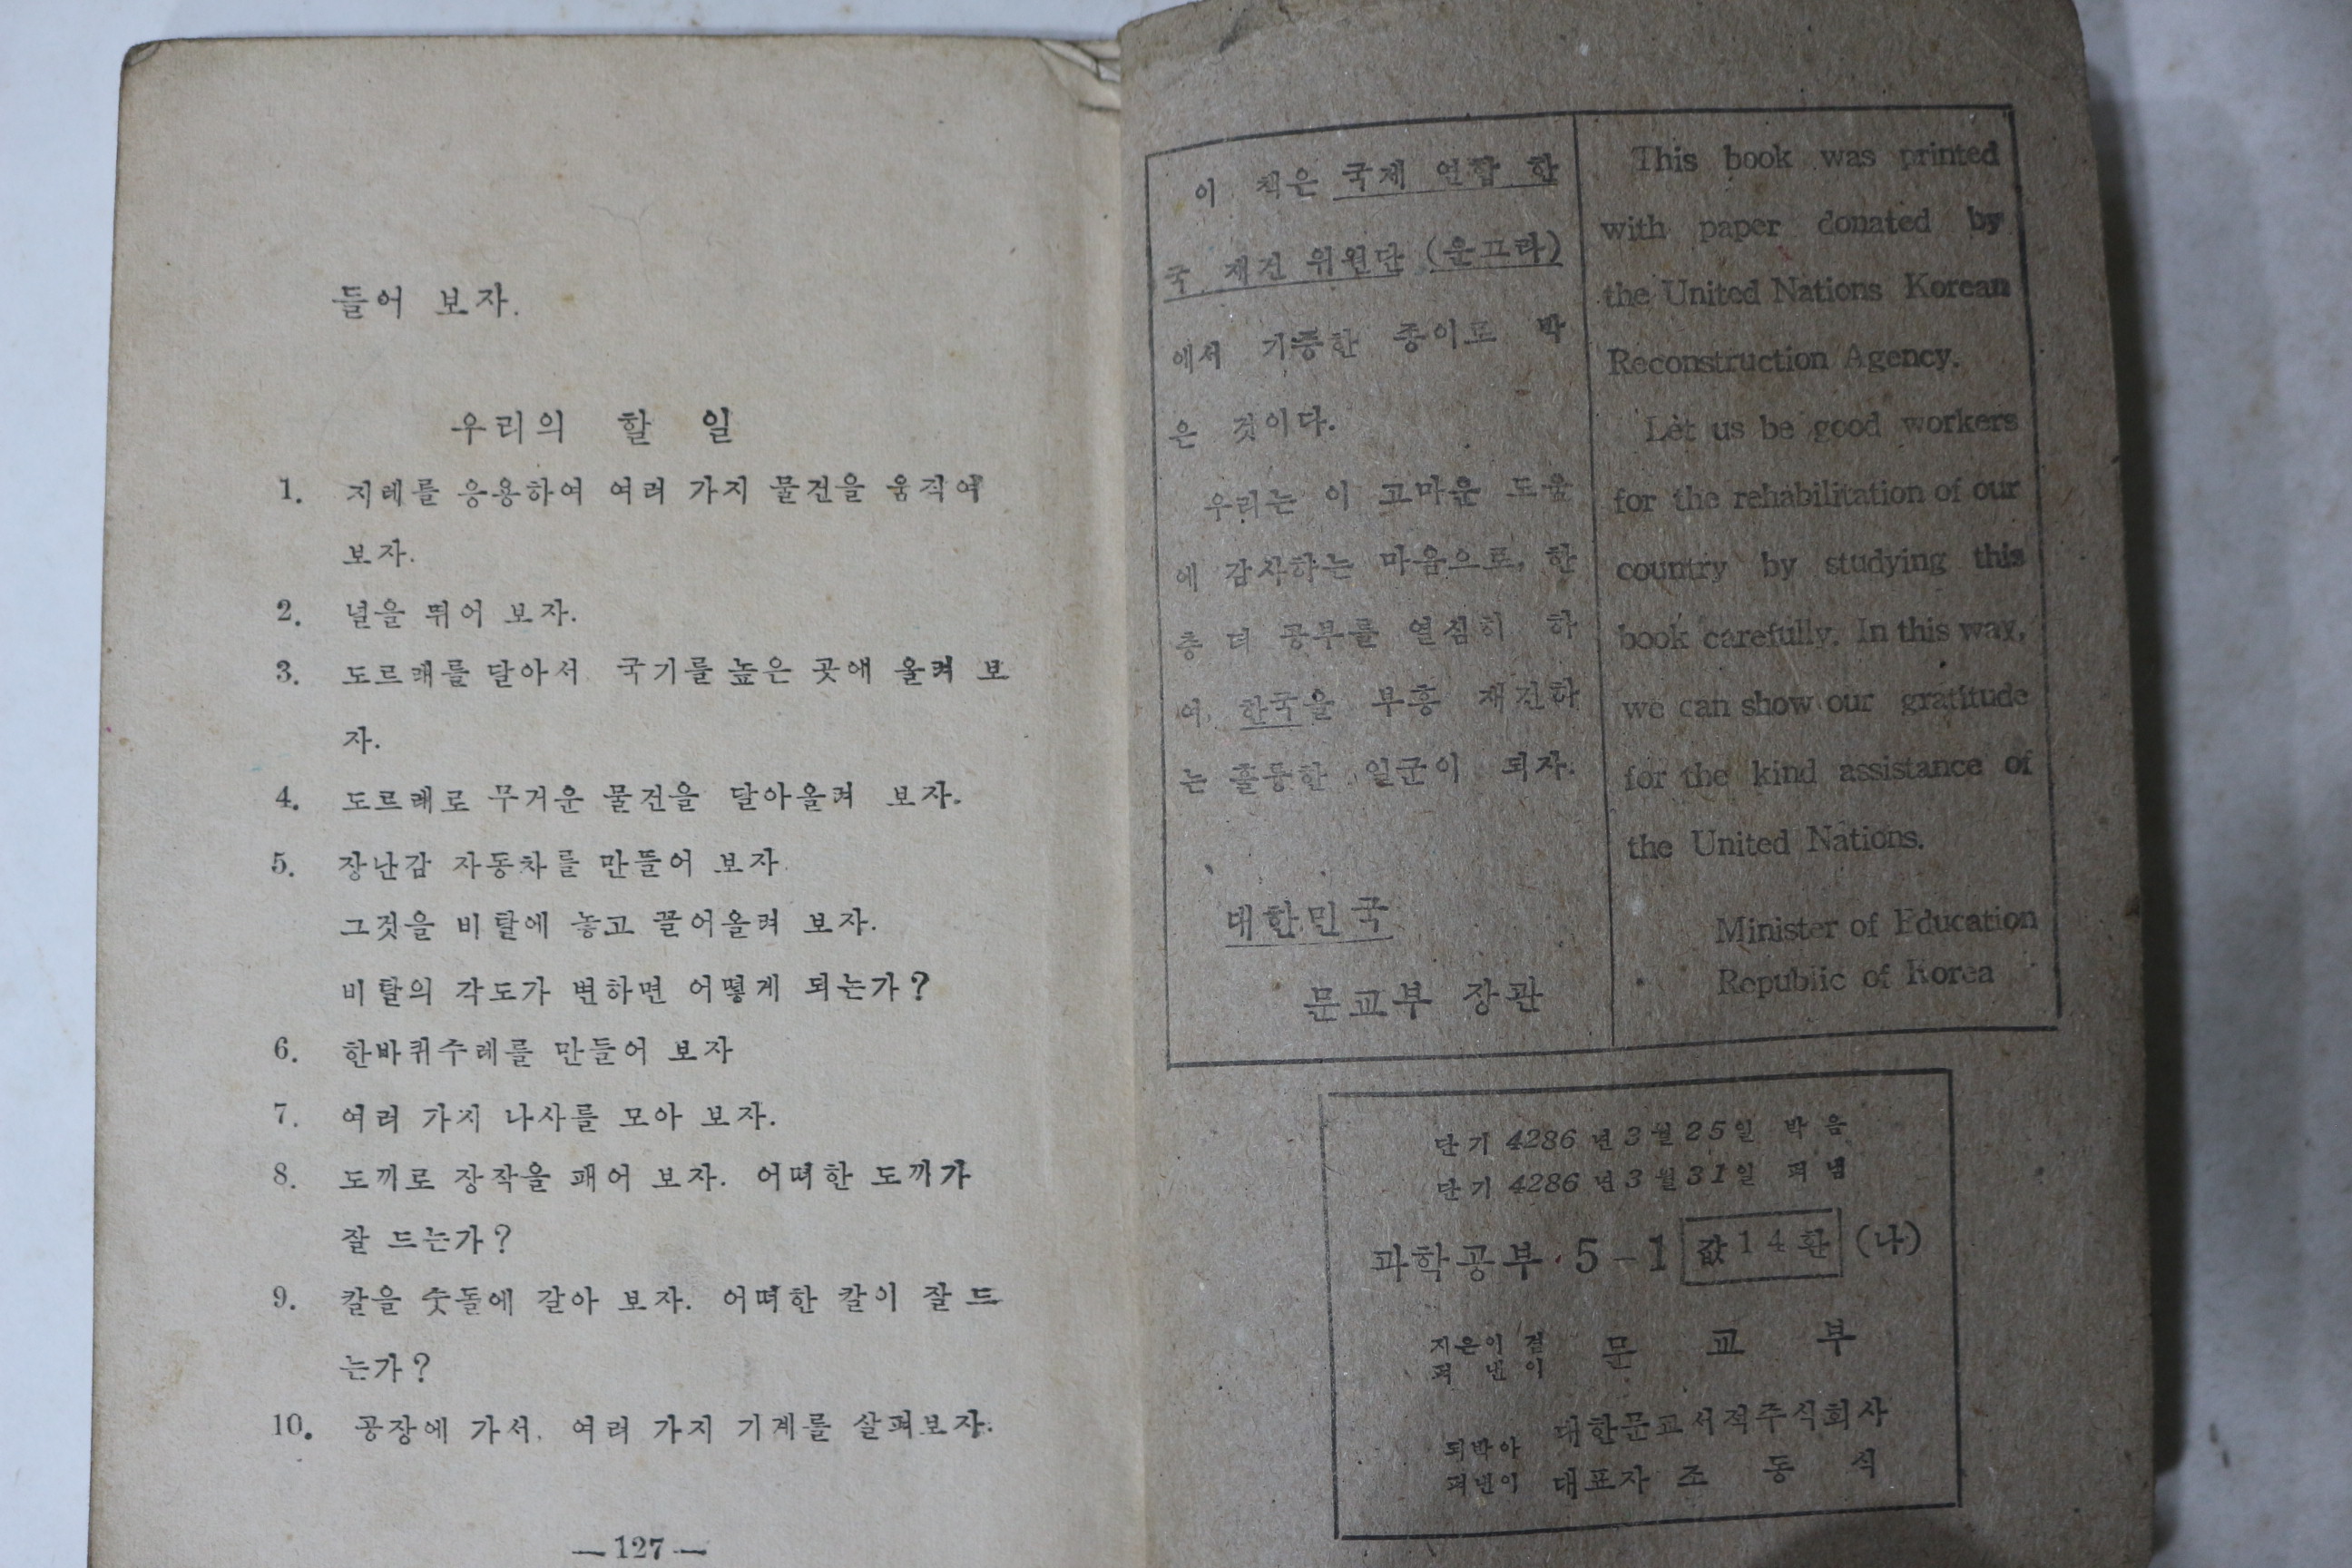 들어 보자.
우리의 할 일
1. 지레를 응용하여 여러 가지 물건을 움직여
보자.
2. 널을 뛰어 보자.
3. 도르래를 달아서 국기를 높은 곳에 올려 보
자.
4. 도르래로 무거운 물건을 달아올려 보자.
5. 장난감 자동차를 만들어 보자.
그것을 비탈에 놓고 끌어올려 보자.
비탈의 각도가 변하면 어떻게 되는가?
6. 한바퀴수레를 만들어 보자
7. 여러 가지 나사를 모아 보자.
8. 도끼로 장작을 패어 보자. 어떠한 도끼가
잘 드는가?
9. 칼을 숫돌에 갈아 보자. 어떠한 칼이 잘 드
는가?
10. 공장에 가서, 여러 가지 기계를 살펴보자.
— 127 —
이 책은 국제 연합 한
국 재건 위원단 (운끄라)
에서 기증한 종이로 박
은 것이다.
우리는 이 고마운 도움
에 감사하는 마음으로, 한
층 더 공부를 열심히 하
여, 한국을 부흥 재건하
는 훌륭한 일군이 되자.
대한민국
문교부 장관
This book was printed
with paper donated by
the United Nations Korean
Reconstruction Agency.
Let us be good workers
for the rehabilitation of our
country by studying this
book carefully. In this way,
we can show our gratitude
for the kind assistance of
the United Nations.
Minister of Education
Republic of Korea
단기 4286 년 3 월 25 일 박음
단기 4286 년 3 월 31 일 펴냄
과학공부·5-1 값 14 환 (나)
지은이 겸
펴낸이 문교부
되박아 대한문교서적주식회사
펴낸이 대표자 조동식